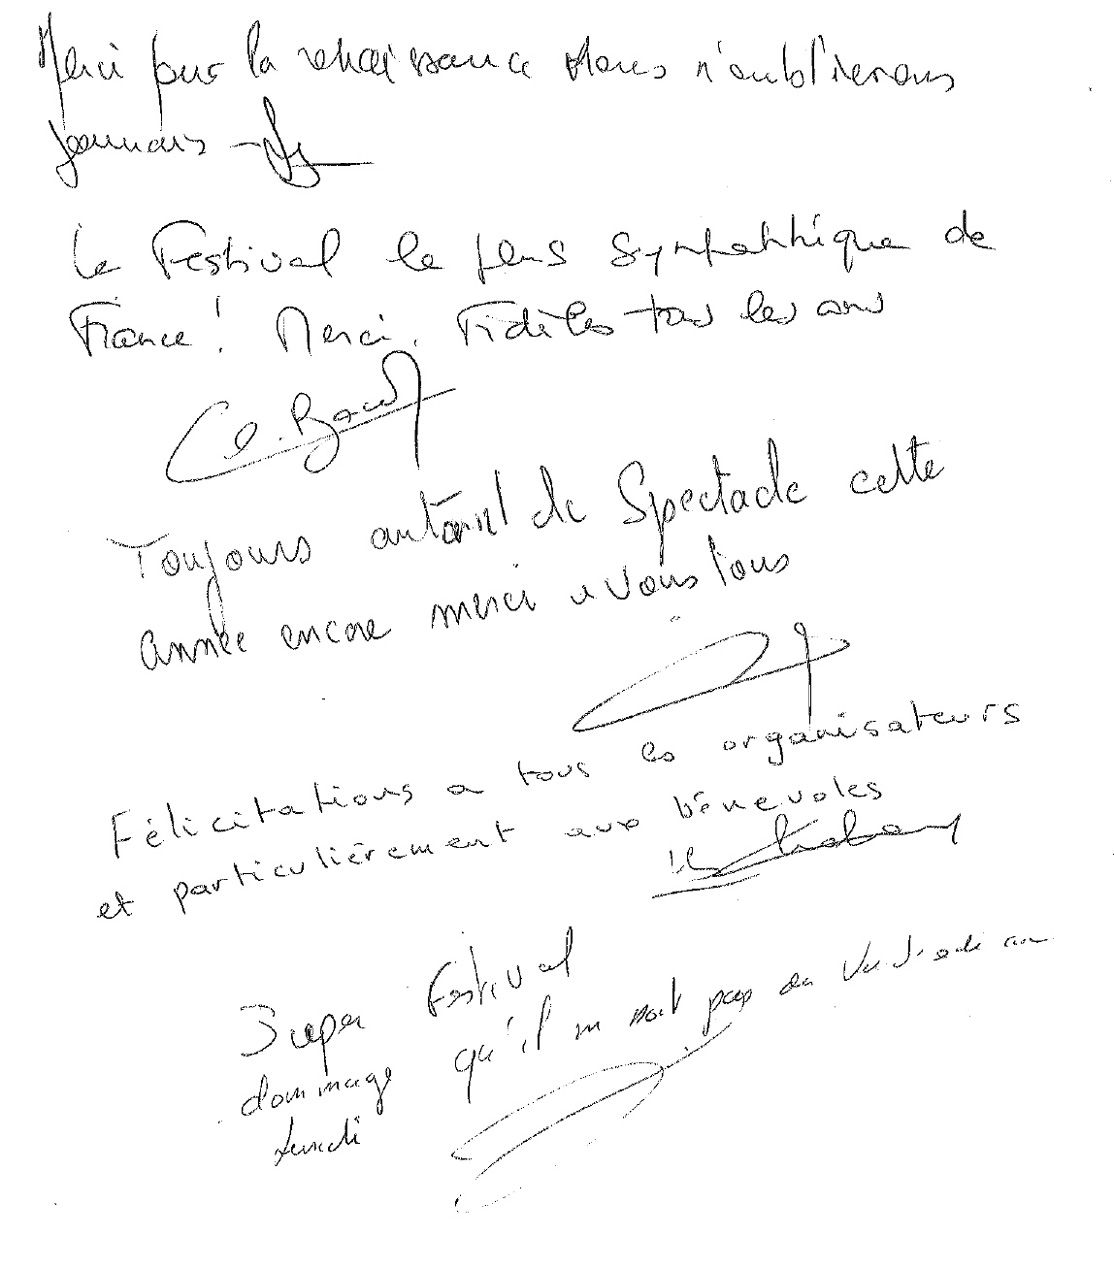 Merci pour la renaissance Nous n'oublierons
jammais
Le Festival le plus sympathhique de
France! Merci. Fidèles tous les ans
Toujours autant de Spectacle cette
année encore merci a vous tous
Félicitations a tous les organisateurs
et particulièrement aux bénevoles
Super Festival
dommage qu'il ne soit pas du Vendredi au
Lundi